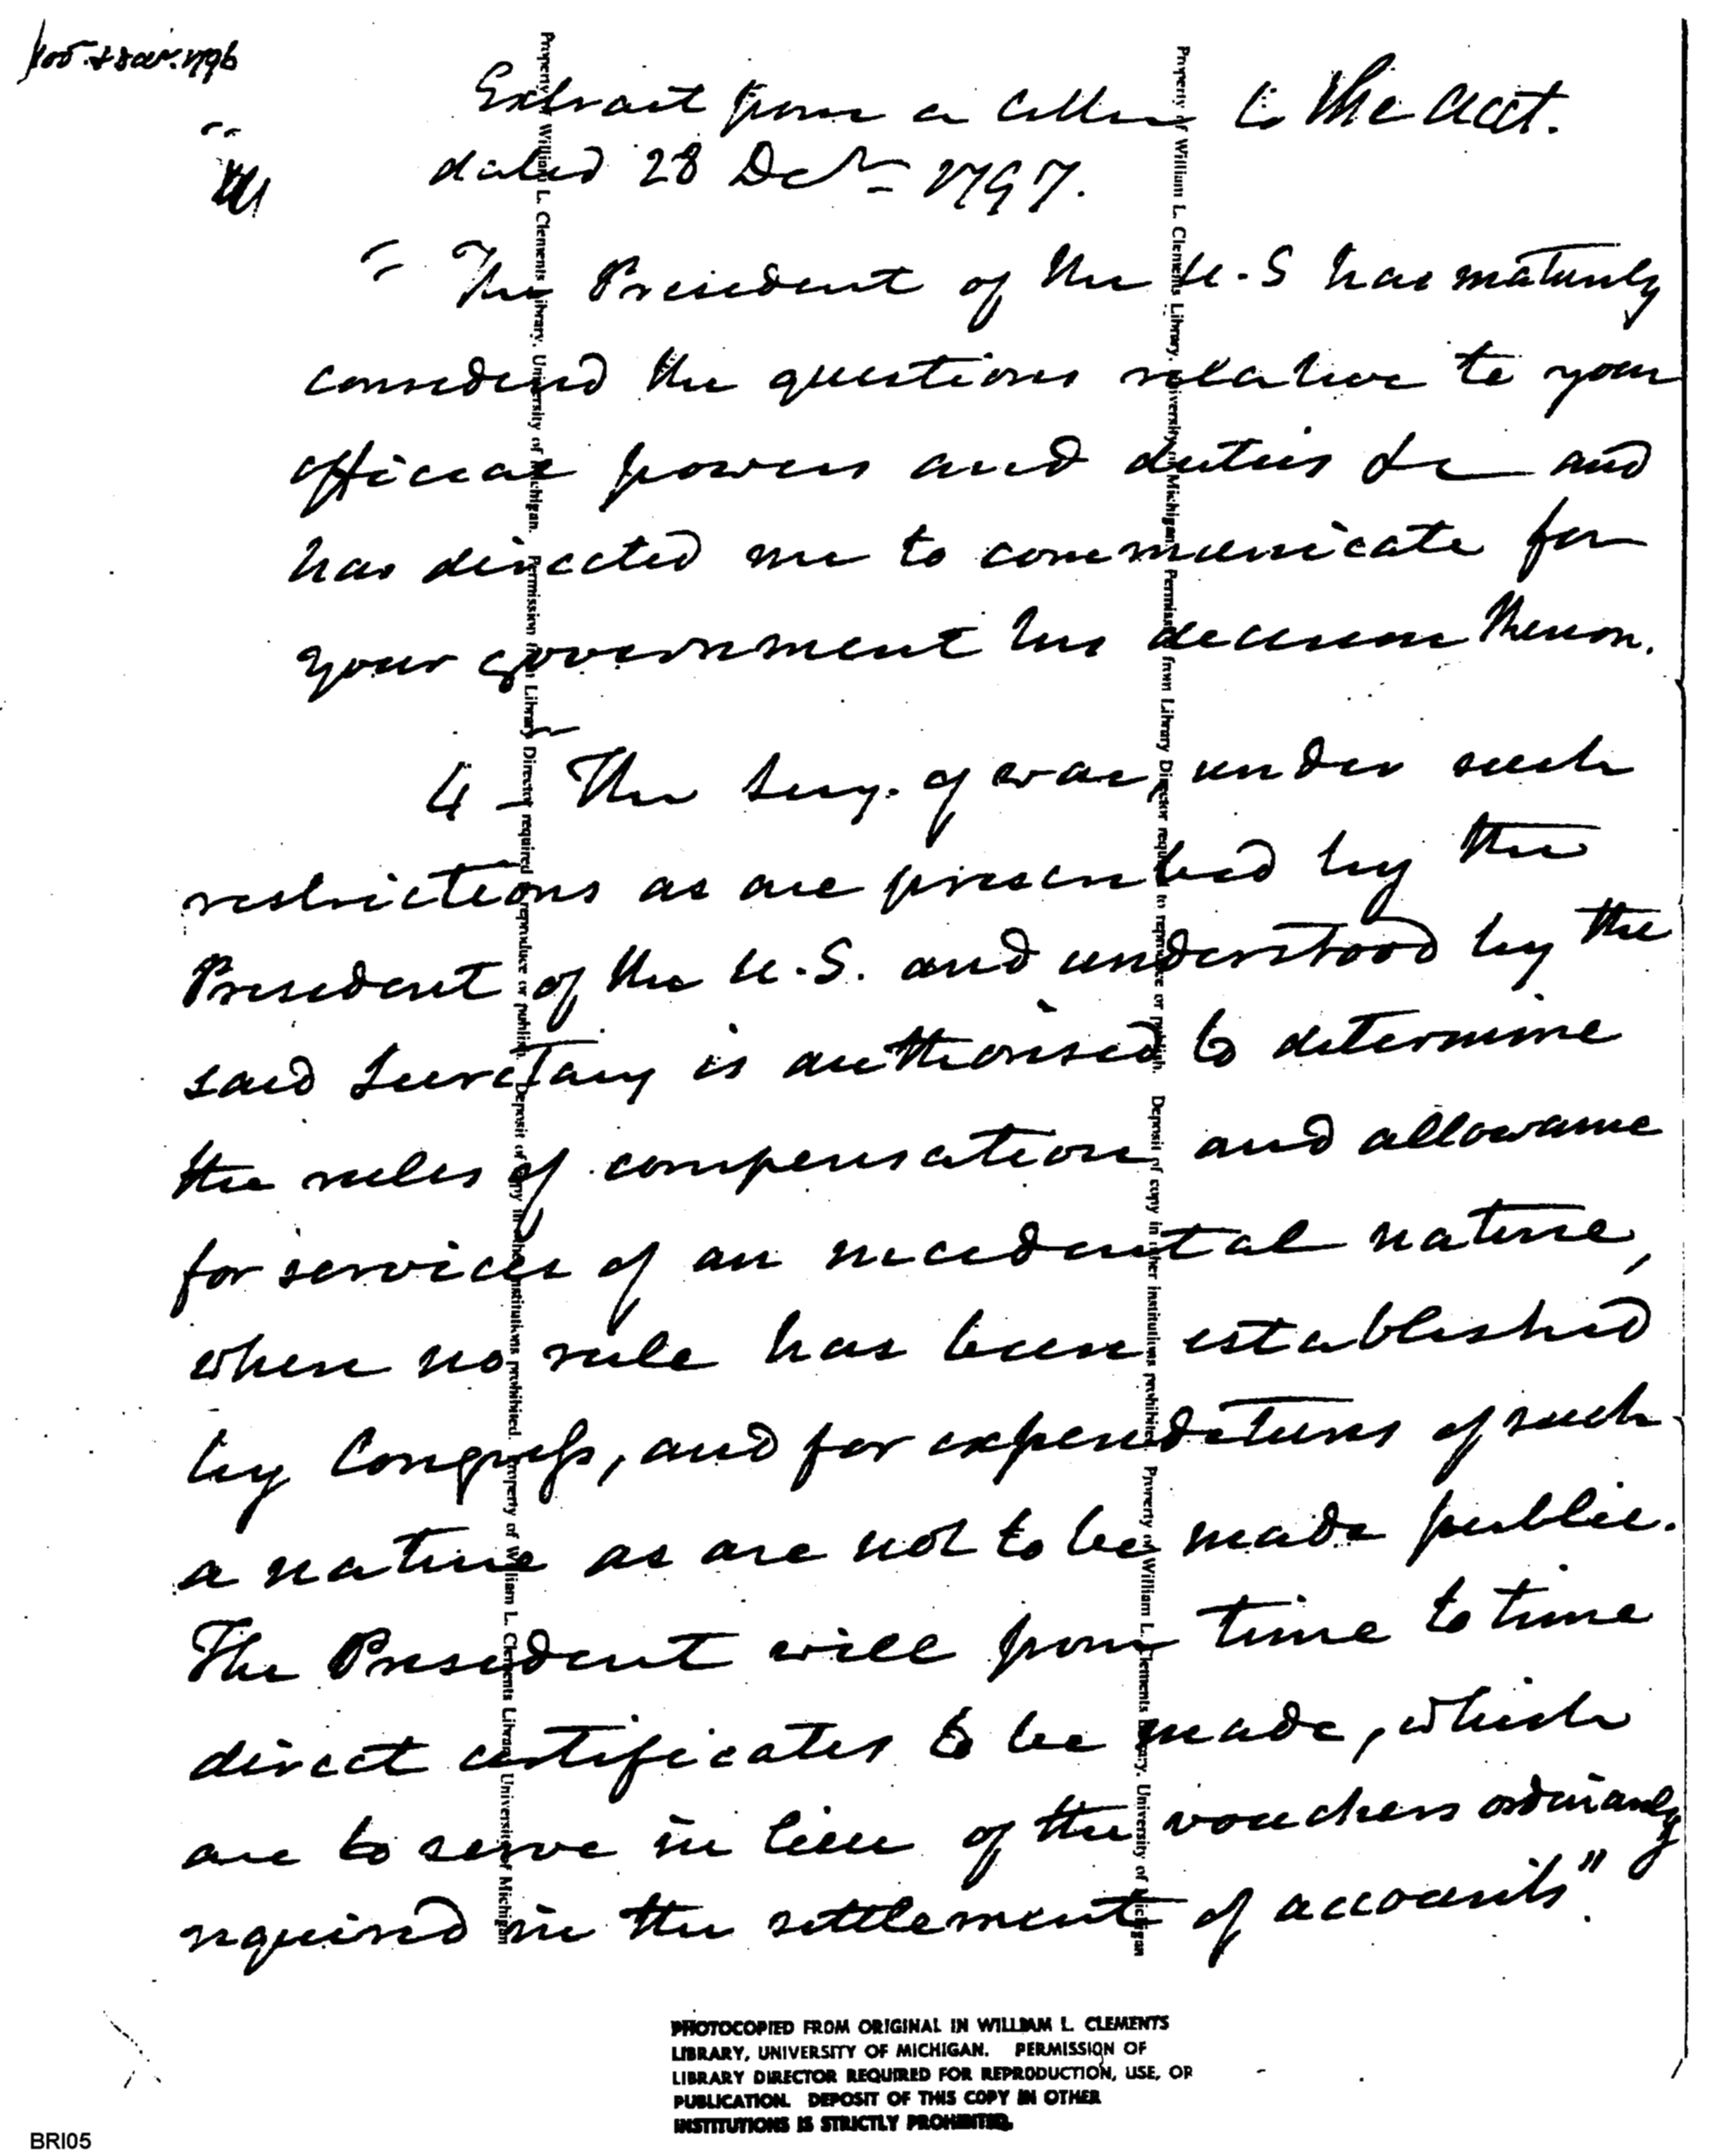 1796
Extract from a letter to the acct.
dated 28 Decr 1797.
" The President of the U.S has maturely
considered the questions relative to your
official powers and duties &c and
has directed me to communicate for
your government his decision thereon.
4 - The Secy. of war, under such
restrictions as are prescribed by the
President of the U.S. and understood by the
said Secretary is authorised to determine
the rules of compensation and allowance
for services of an incidental nature,
where no rule has been established
by Congress, and for expenditures of such
a nature as are not to be made public.
The President will from time to time
direct certificates to be made, which
are to serve in lieu of the vouchers ordinarily
required in the settlement of accounts".
Property of William L. Clements Library. University of Michigan. Permission from Library Director required to reproduce or publish. Deposit of copy in other institutions prohibited. Property of William L. Clements Library. University of Michigan
Property of William L. Clements Library. University of Michigan. Permission from Library Director required to reproduce or publish. Deposit of copy in other institutions prohibited. Property of William L. Clements Library. University of Michigan
PHOTOCOPIED FROM ORIGINAL IN WILLIAM L. CLEMENTS
LIBRARY, UNIVERSITY OF MICHIGAN. PERMISSION OF
LIBRARY DIRECTOR REQUIRED FOR REPRODUCTION, USE, OR
PUBLICATION. DEPOSIT OF THIS COPY IN OTHER
INSTITUTIONS IS STRICTLY PROHIBITED.
BRI05